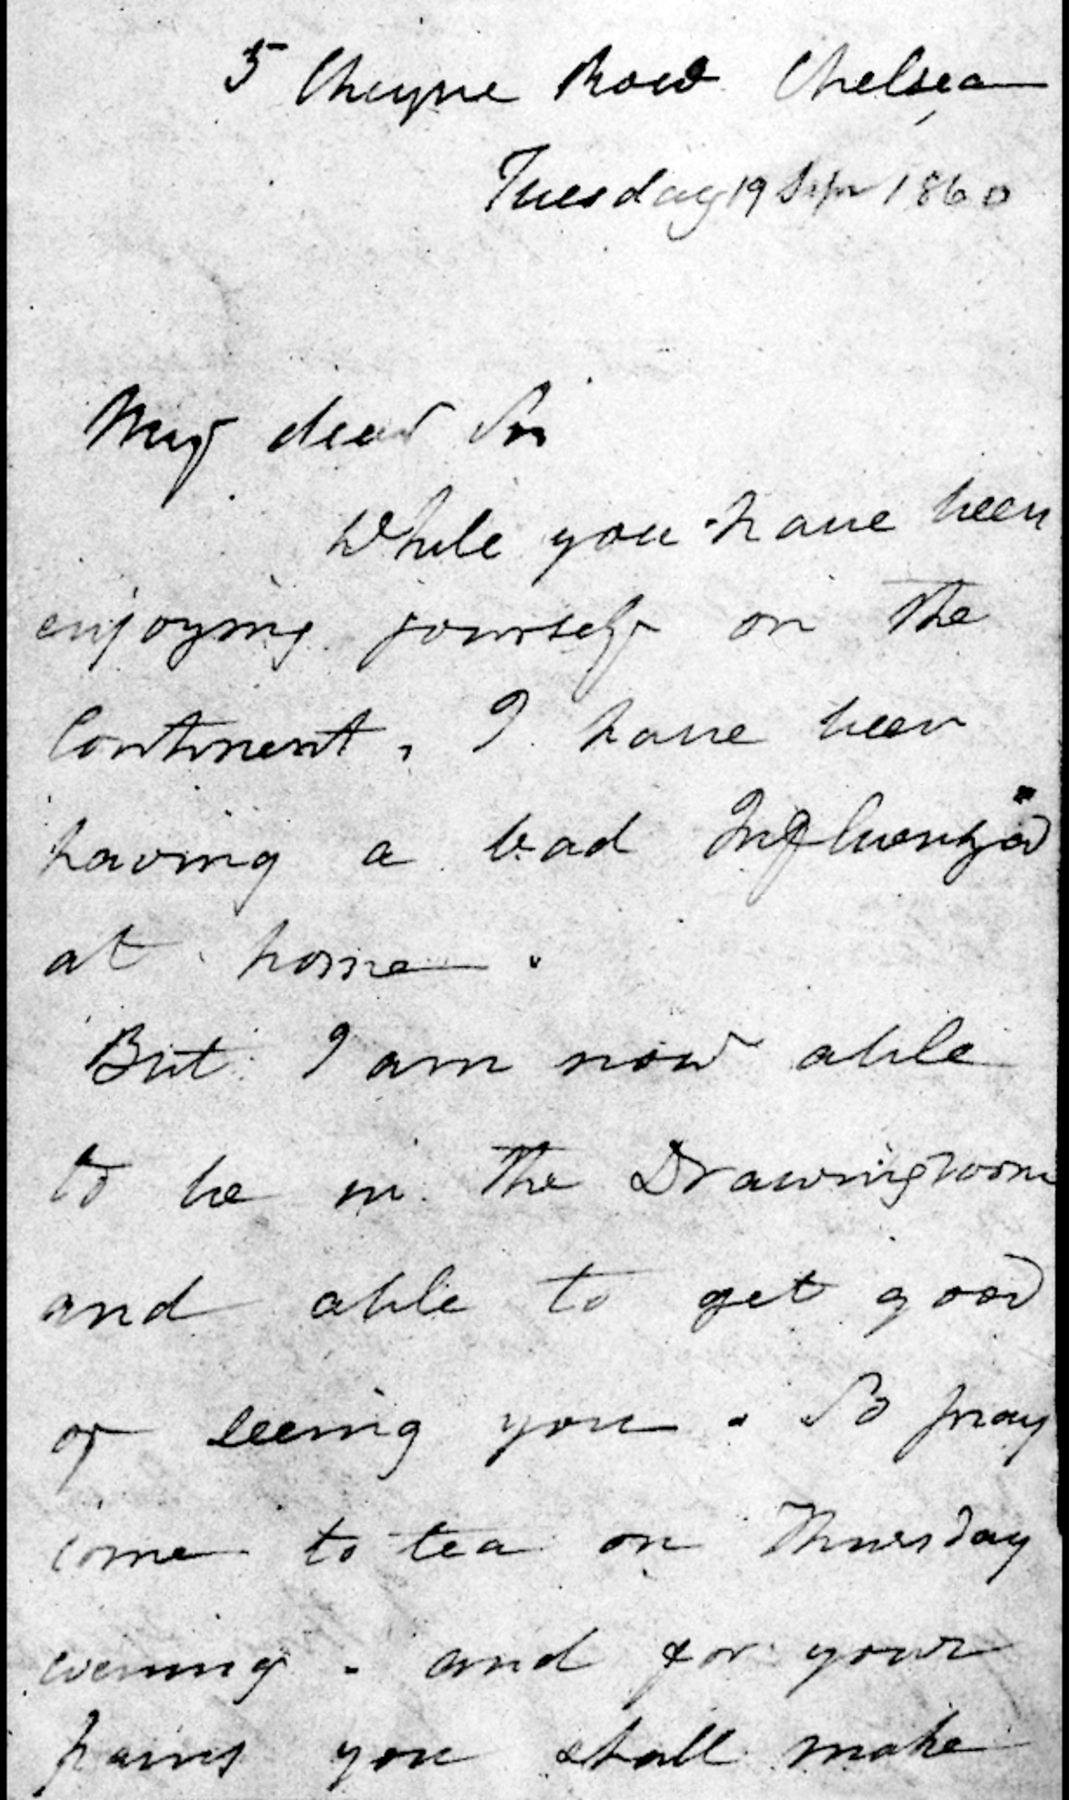 5 Cheyne Row Chelsea
Tuesday 19 Sepr 1860
My dear Sir
While you have been
enjoying yourself on the
Continent, I have been
having a bad Influenza
at home.
But I am now able
to be in the Drawingroom
and able to get good
of seeing you. So pray
come to tea on Thursday
evening. and for your
pains you shall make